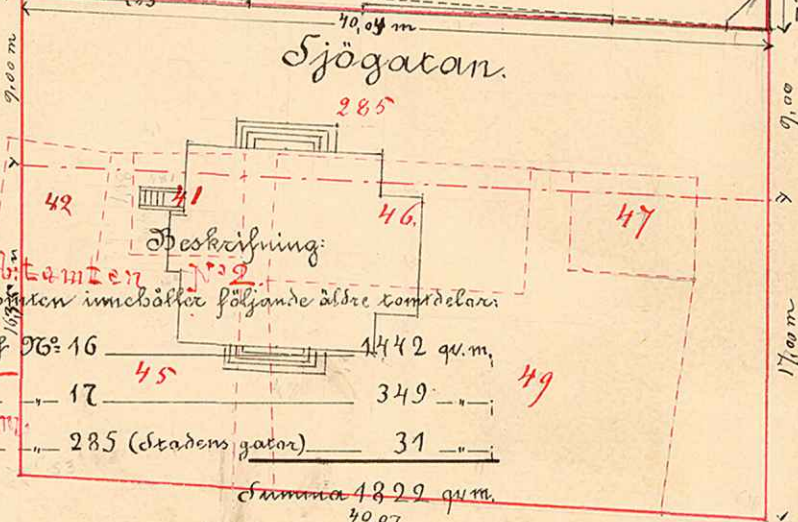 40,04 m
Sjögatan.
9,00 m
9,00
285
42
41
46.
47
Beskrifning:
tomten No 2.
tomten innehåller följande äldre tomtdelar:
No: 16 1442 qv.m.
45
49
" 17 349 "
17,00 m
" 285 (Stadens gator) 31 "
Summa 1822 qv.m.
40,07